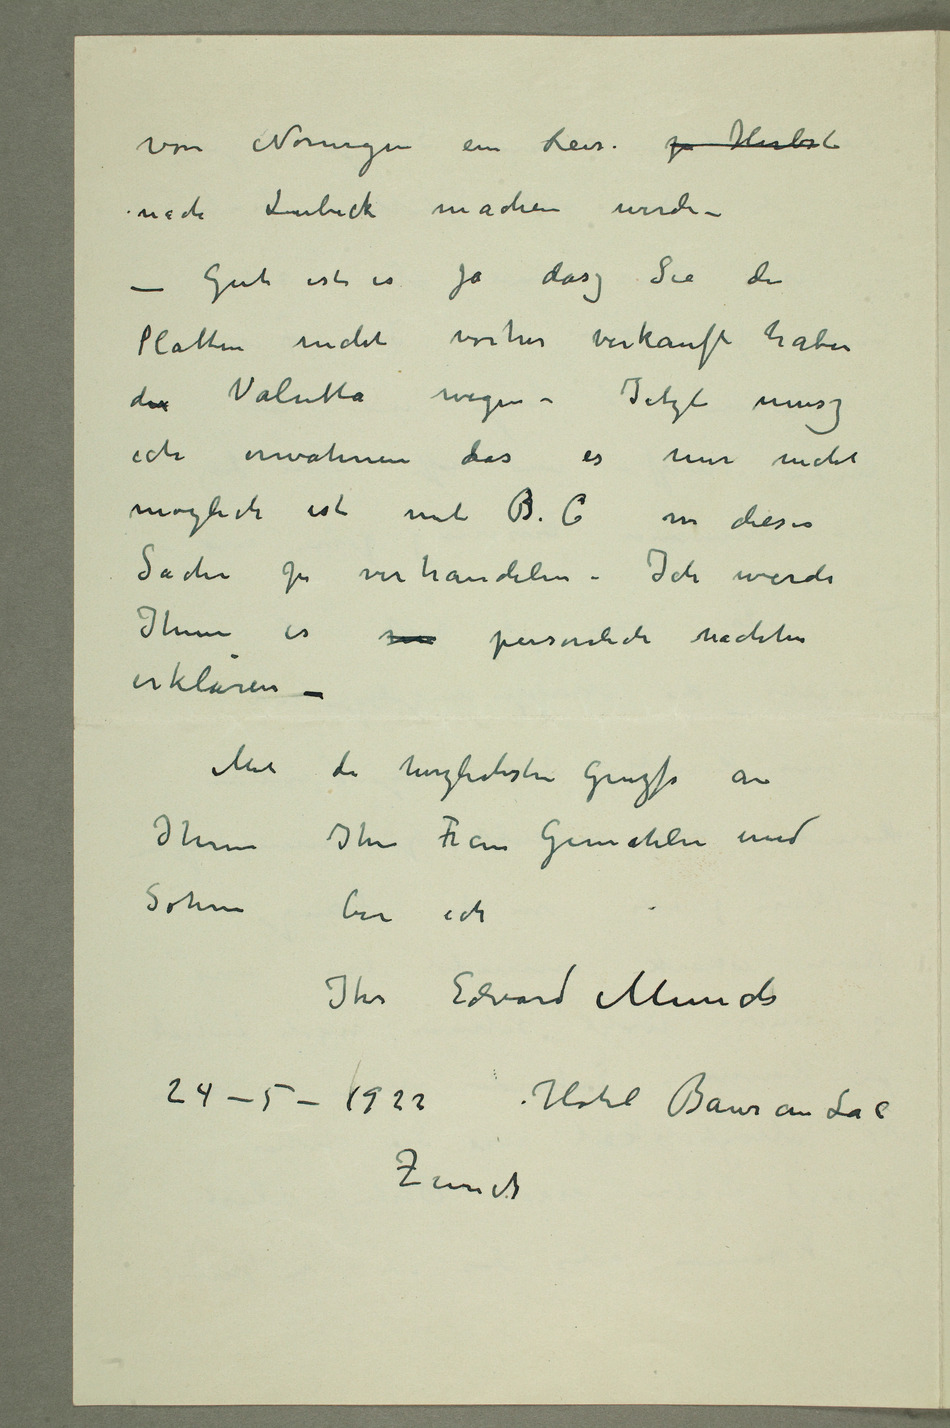 von Norwegen ein Reise zu Herbst
nach Lubeck machen werde –
– Gut ist es ja dasz Sie die
Platten nicht vorher verkauft haben
der Valutta wegen – Jetzt musz
ich erwahnen das es mir nicht
moglich ist mit B. C in dieser
Sache zu verhandelen – Ich werde
Ihnen es personlich nachher
erklären –
Mit die herzlichsten Gruzse an
Ihnen Ihre Frau Gemahlin und
Sohne bin ich
Ihr Edvard Munch
24 – 5 – 1922 Hotel Baur au Lac
Zurich